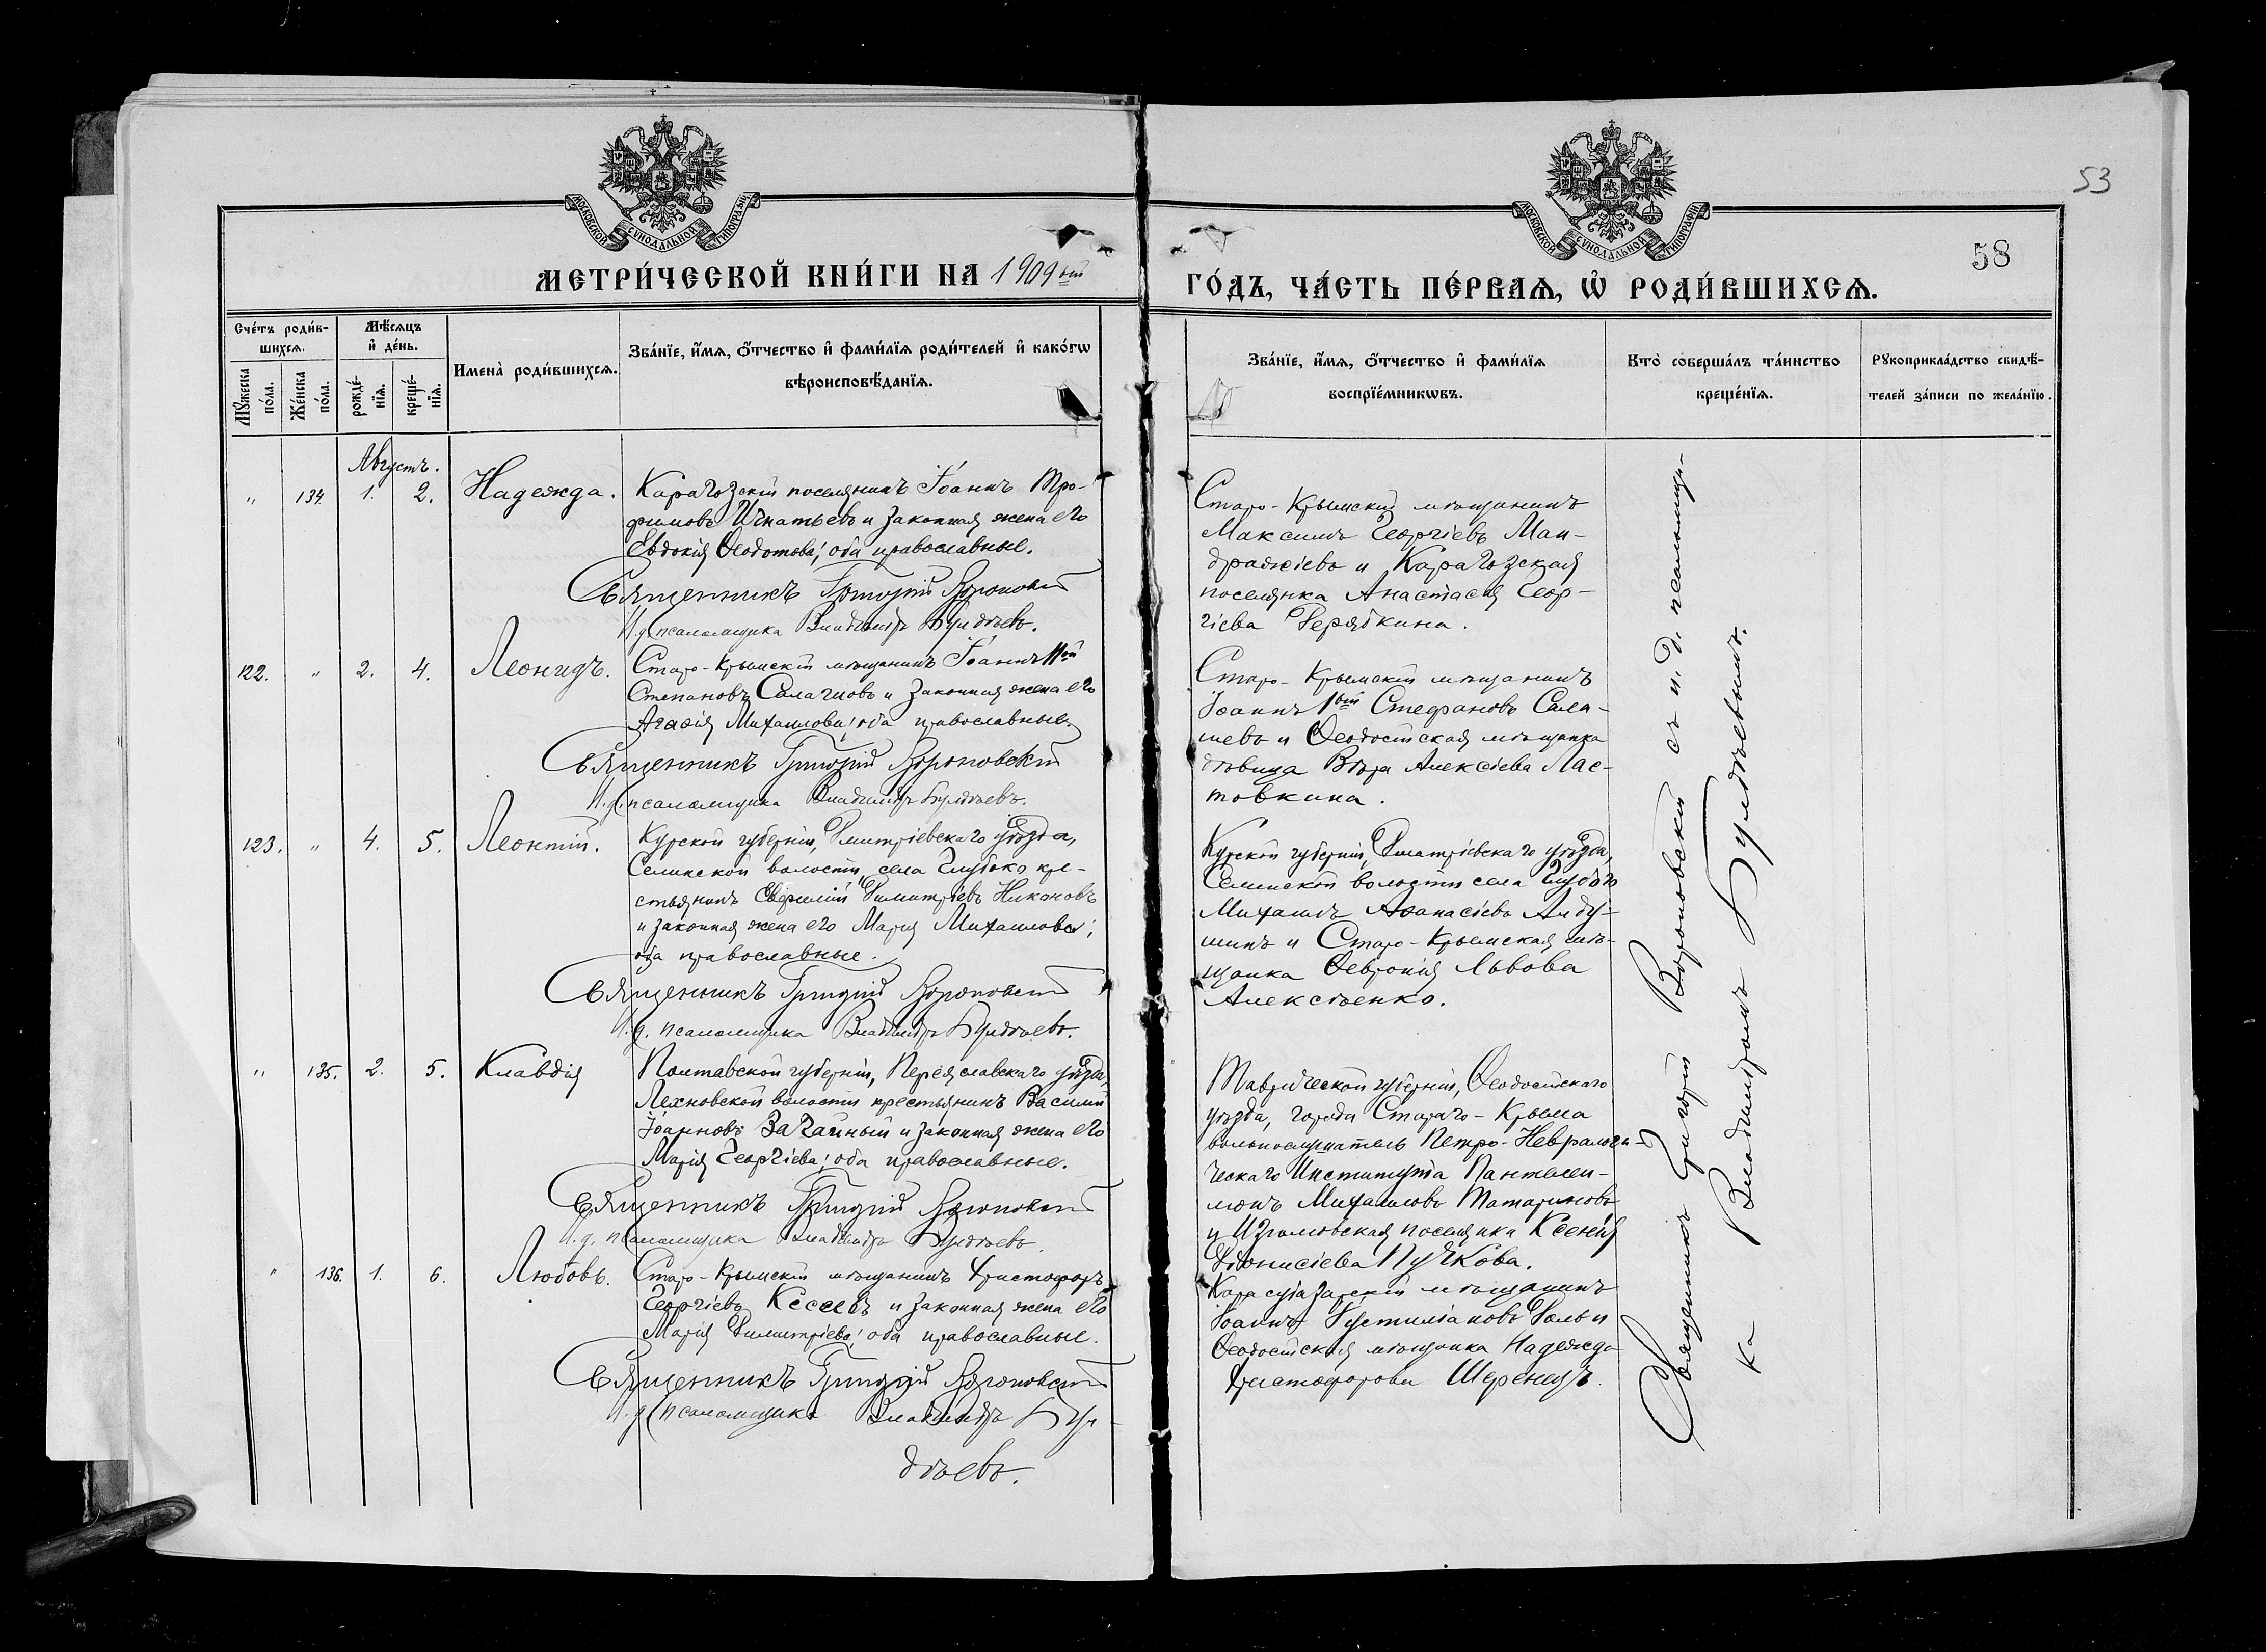 53
58
МОСКОВСКОЙ СѴНОДАЛЬНОЙ ТИПОГРАФІИ
МОСКОВСКОЙ СѴНОДАЛЬНОЙ ТИПОГРАФІИ
МЕТРИ́ЧЕСКОЙ КНИ́ГИ НА 1909 ый
ГО́ДЪ, ЧА́СТЬ ПЕ́РВАѦ, Ѡ҆ РОДИ́ВШИХСѦ.
Сче́тъ роди́в-
шихсѧ.
Мꙋ́жеска
по́ла.
Же́нска
по́ла.
Мѣ́сѧцъ
и҆ де́нь.
рожде́-
нїѧ.
креще́-
нїѧ.
Имена̀ роди́вшихсѧ.
Зва́нїе, и҆́мѧ, ѻ҆́тчество и҆ фами́лїѧ роди́телей и҆ како́гѡ
вѣроисповѣ́данїѧ.
Зва́нїе, и҆́мѧ, ѻ҆́тчество и҆ фами́лїѧ
воспрїе́мникѡвъ.
Кто̀ соверша́лъ та́инство
креще́нїѧ.
Рꙋкоприкла́дство свидѣ́-
телей за́писи по жела́нїю.
Августъ.
" 134 1. 2. Надежда.
Карагозскій поселянинъ Іоаннъ Тро-
фимовъ Игнатьевъ и законная жена его
Евдокія Ѳеодотова; оба православные.
Священникъ Григорій Вороновскій
И. д. псаломщика Владиміръ Булдѣевъ.
Старо-Крымскій мѣщанинъ
Максимъ Георгіевъ Ман-
дражіевъ и Карагозская
поселянка Анастасія Геор-
гіева Дерябкина.
122. " 2. 4. Леонидъ.
Старо-Крымскій мѣщанинъ Іоаннъ IIой
Степановъ Салачиовъ и законная жена его
Агаѳія Михаилова; оба православные.
Священникъ Григорій Вороновскій
И. д. псаломщика Владиміръ Булдѣевъ.
Старо-Крымскій мѣщанинъ
Іоаннъ 1вый Стефановъ Сала-
шевъ и Ѳеодосійская мѣщанка
дѣвица Вѣра Алексіева Лас-
товкина.
123. " 4. 5. Леонтій.
Курской губерніи, Дмитріевскаго уѣзда,
Селинской волости, села Глубоко кре-
стьянинъ Евфимій Димитріевъ Никоновъ
и законная жена его Марія Михаилова;
оба православные.
Священникъ Григорій Вороновскій
И. д. псаломщика Владиміръ Булдѣевъ.
Курской губерніи, Дмитріевскаго уѣзда,
Селинской волости села Глубоко
Михаилъ Аѳанасіевъ Алду-
шинъ и Старо-Крымская мѣ-
щанка Ѳевронія Львова
Алексѣенко.
" 135. 2. 5. Клавдія
Полтавской губерніи, Переяславскаго уѣзда,
Лехновской волости крестьянинъ Василій
Іоанновъ Загайный и законная жена его
Марія Георгіева; оба православные.
Священникъ Григорій Вороновскій
И. д. псаломщика Владиміръ Булдѣевъ.
Таврической губерніи, Ѳеодосійскаго
уѣзда, города Стараго-Крыма
вольнослушатель Петро-Невралоги-
ческаго Института Пантелеи-
монъ Михаиловъ Татариновъ
и Изюмовская поселянка Ксенія
Діонисіева Пучкова.
" 136. 1. 6. Любовь.
Старо-Крымскій мѣщанинъ Христофоръ
Георгіевъ Кесеевъ и законная жена его
Марія Димитріева; оба православные.
Священникъ Григорій Вороновскій
И. д. псаломщика Владиміръ Бул-
дѣевъ.
Карасубазарскій мѣщанинъ
Іоаннъ Іустиліановъ Поль и
Ѳеодосійская мѣщанка Надежда
Христофорова Шеренецъ.
Священникъ Григорій Вороновскій съ и. д. псаломщи-
ка Владиміромъ Булдѣевымъ.